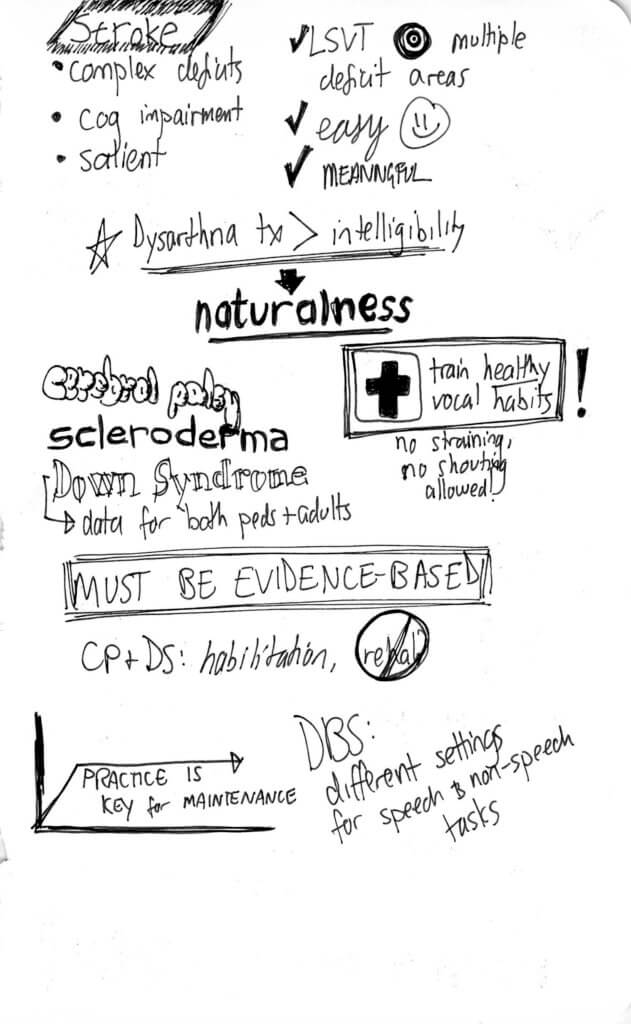 Stroke
• complex deficits
• cog impairment
• salient
✓LSVT multiple
deficit areas
✓ easy
✓ MEANNGFUL
☆ Dysarthria tx > intelligibility
naturalness
cerebral palsy
scleroderma
Down Syndrome
→ data for both peds + adults
train healthy
vocal habits !
no straining,
no shouting
allowed!
MUST BE EVIDENCE-BASED
CP + DS: habilitation, rehab
PRACTICE IS
KEY for MAINTENANCE
DBS:
different settings
for speech & non-speech
tasks